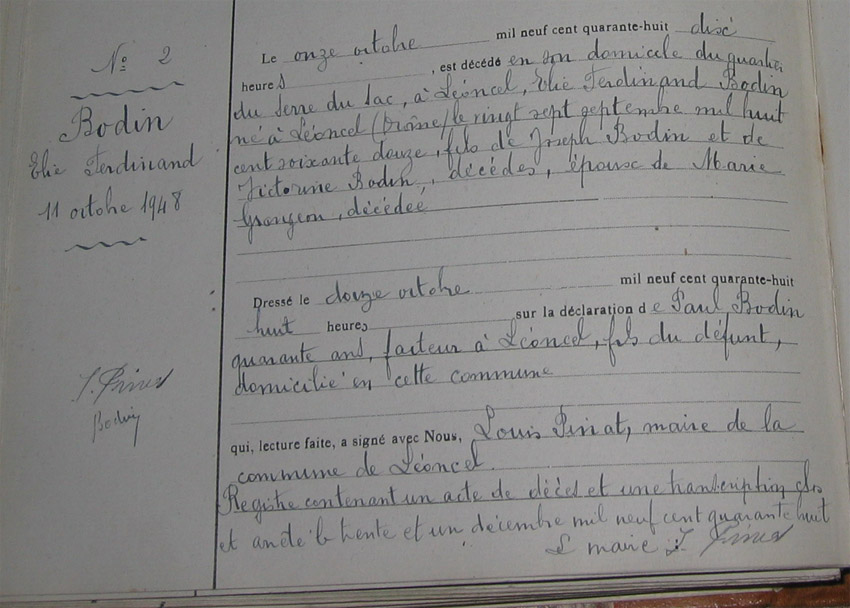 N° 2
Bodin
Elie Ferdinand
11 octobre 1948
Le onze octobre mil neuf cent quarante-huit dix
heures, est décédé en son domicile du quartier
du Serre du Sac, à Léoncel, Elie Ferdinand Bodin
né à Léoncel (Drôme) le vingt sept septembre mil huit
cent soixante douze, fils de Joseph Bodin et de
Victorine Bodin, décédés, époux de Marie
décédée
Dressé le douze octobre mil neuf cent quarante-huit
huit heures sur la déclaration de Paul Bodin
quarante ans, facteur à Léoncel, fils du défunt,
domicilié en cette commune
qui, lecture faite, a signé avec Nous, Louis maire de la
commune de Léoncel.
Registre contenant un acte de décès et une transcription clos
et arrêté le trente et un décembre mil neuf cent quarante huit
L maire
Bodin